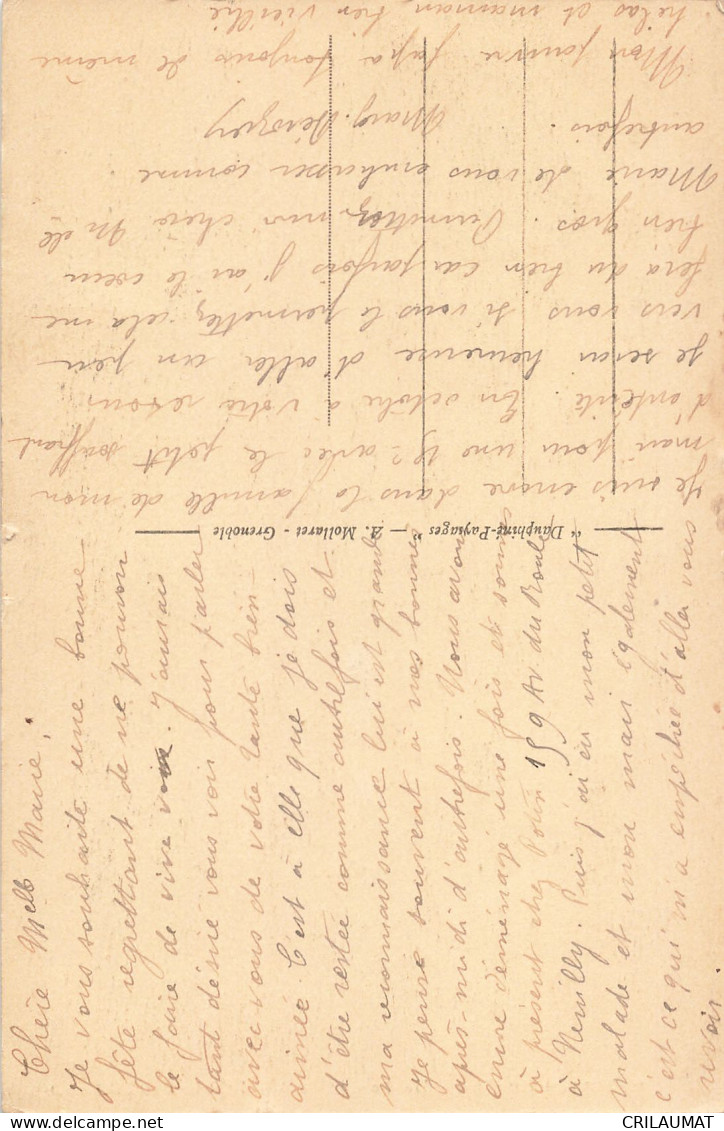 Chère Melle Marie,
Je vous souhaite une bonne
fête regrettant de ne pouvoir
le faire de vive voix. J'aurais
tant désiré vous voir pour parler
avec vous de votre tante bien-
aimée. C'est à elle que je dois
d'être restée comme autrefois et
ma reconnaissance lui est grande
Je pense souvent à nos bonnes
après-midi d'autrefois. Nous avons
encore déménagé une fois et nous
à présent chez Potin 159 Av. du Roule
à Neuilly. Puis j'ai eu mon petit
malade et mon mari également
c'est ce qui m'a empêchée d'aller vous
revoir.
Je suis encore dans la famille de mon
mari pour une 15e avec le petit souffrant
d'entérite. En octobre à votre retour
je serai heureuse d'aller un peu
vers vous si vous le permettez, cela me
fera du bien car parfois j'ai le cœur
bien gros. Permettez-moi chère Melle
Marie de vous embrasser comme
autrefois.
Marg.
Mon pauvre papa toujours de même
hélas et maman bien vieillie
"Dauphiné-Paysages" — A. Mollaret - Grenoble
CRILAUMAT